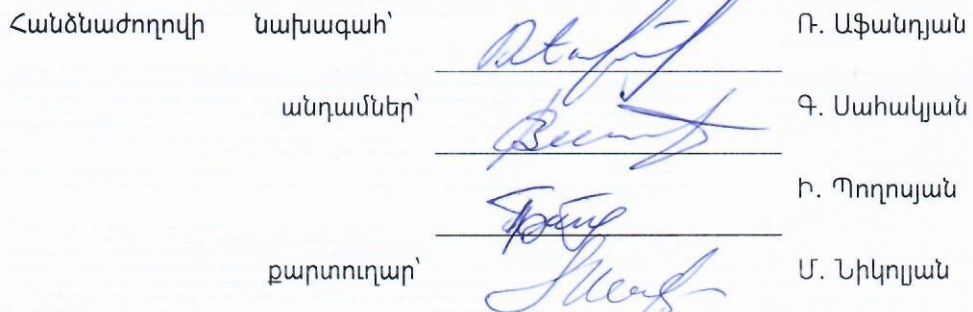 Հանձնաժողովի նախագահ՝ Ռ. Աֆանդյան
անդամներ՝ Գ. Սահակյան
Ի. Պողոսյան
քարտուղար՝ Մ. Նիկոլյան